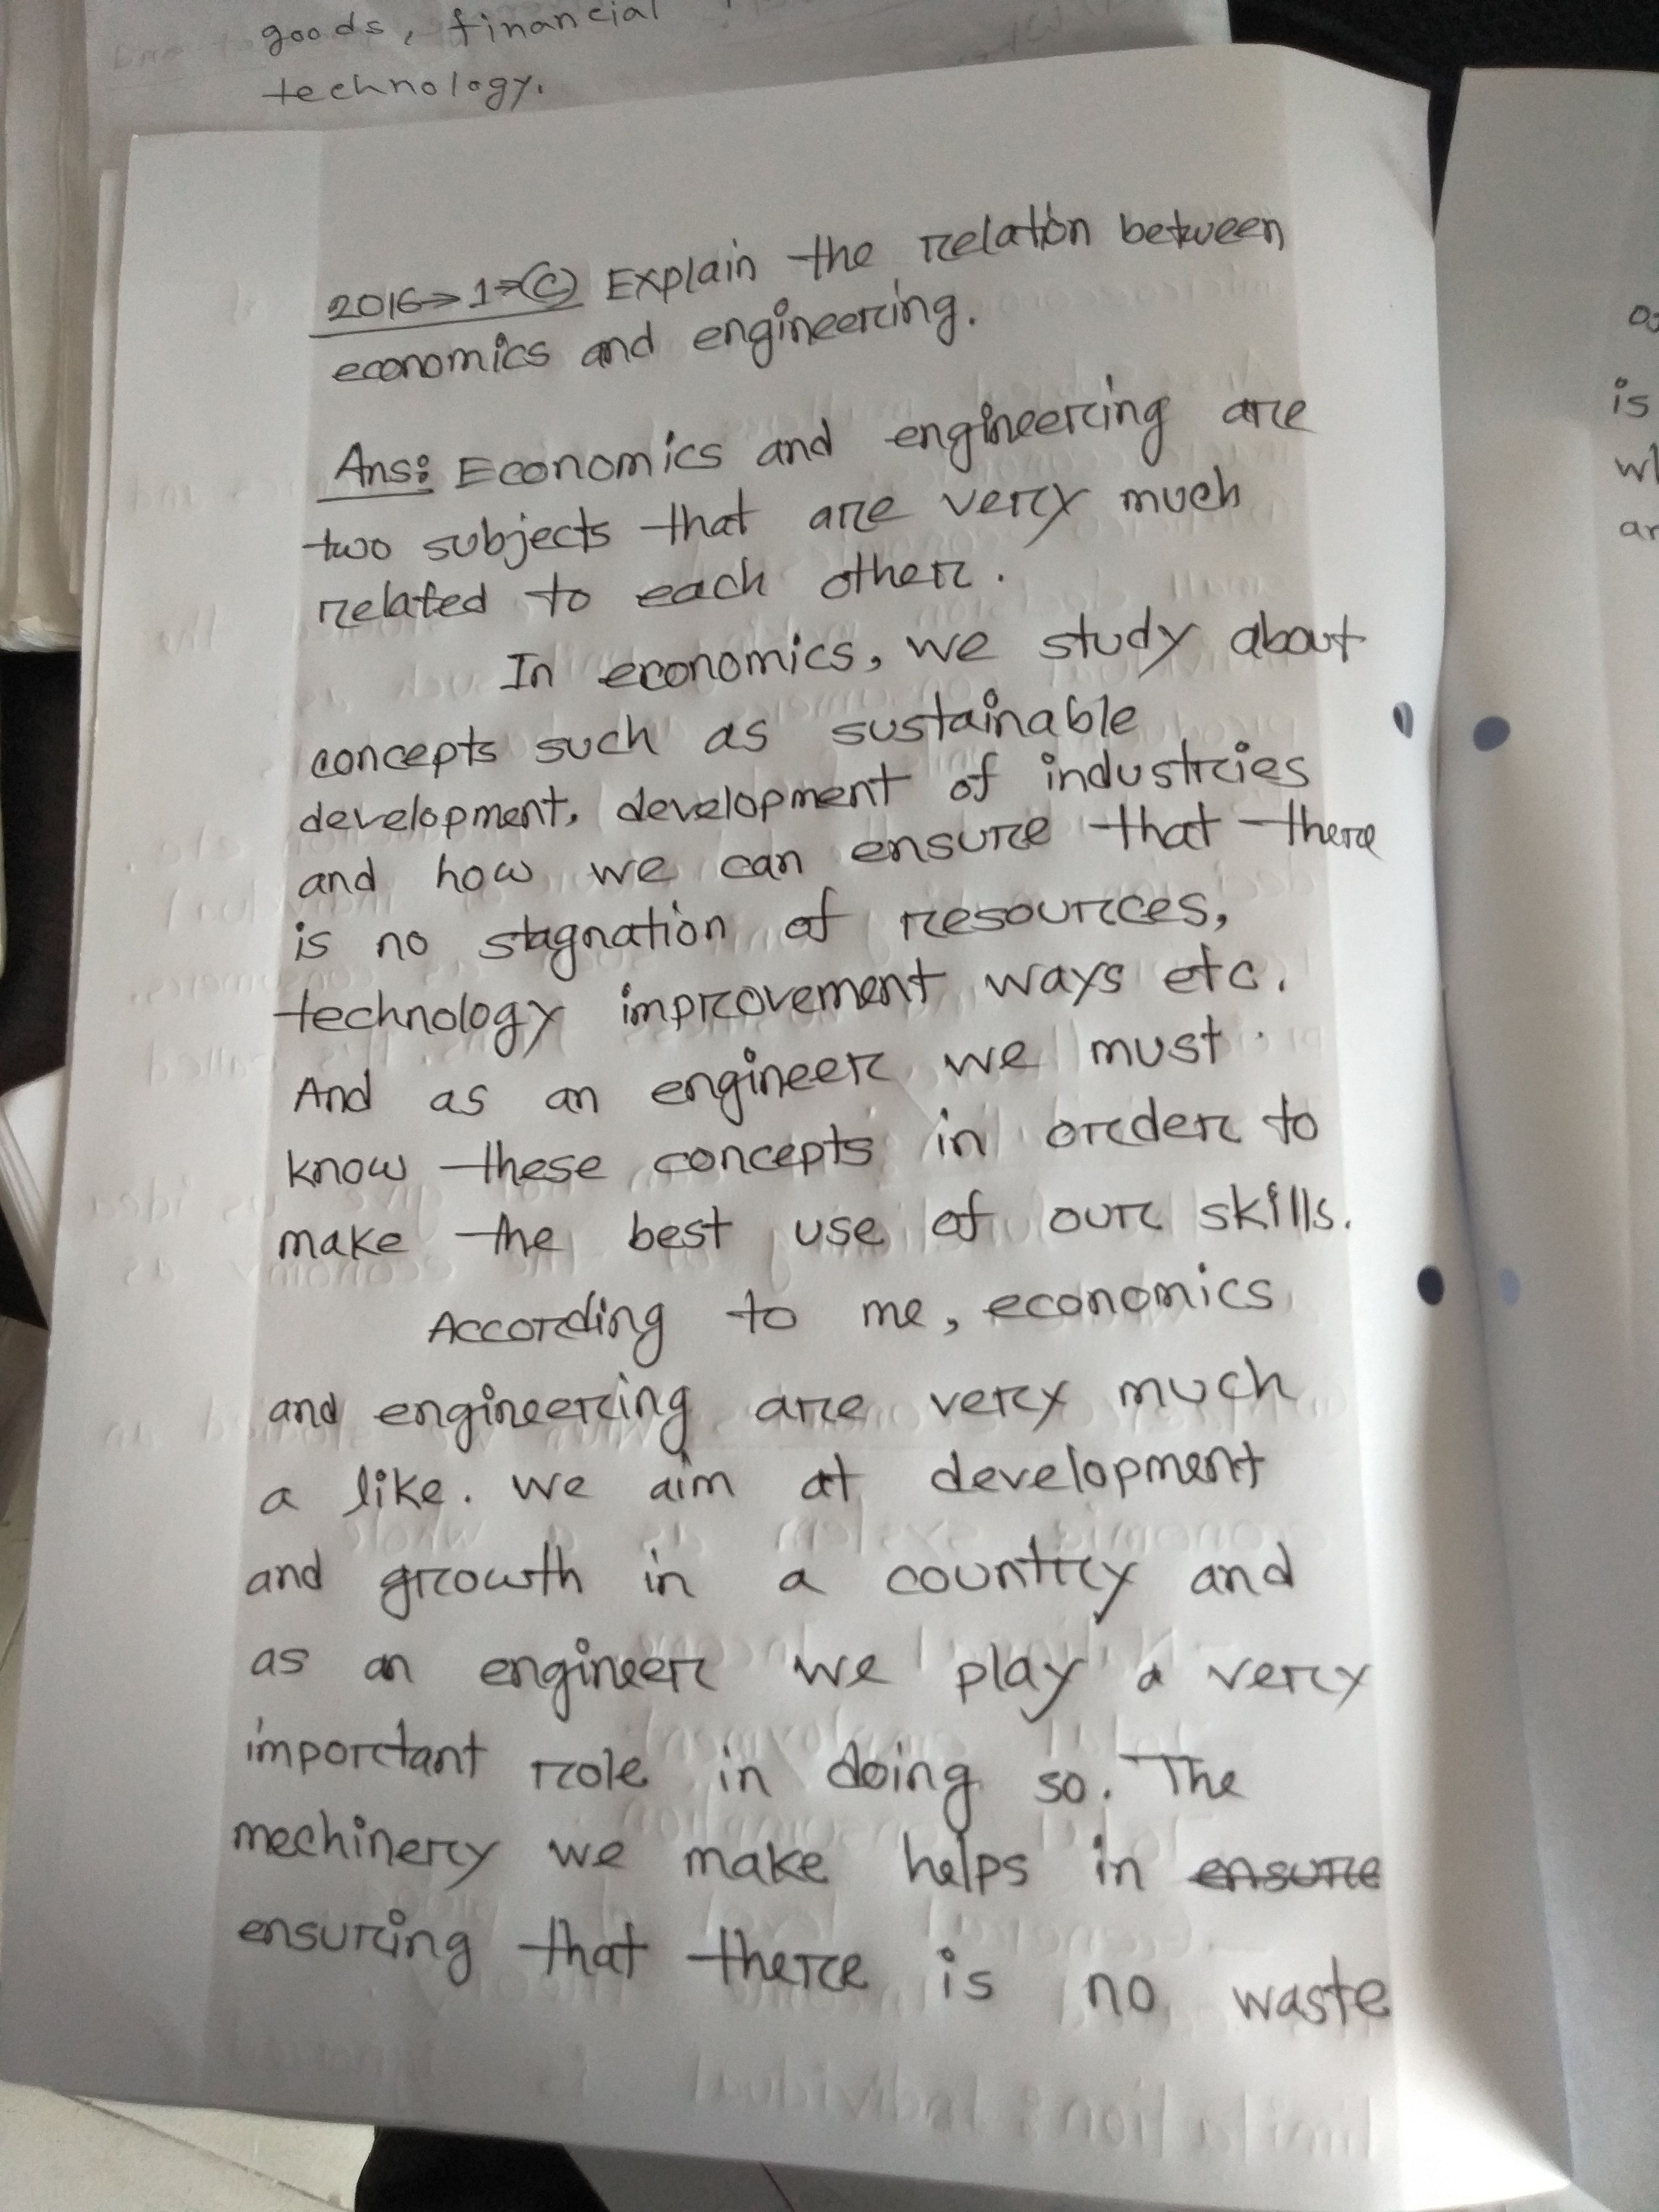 goods, financial
technology.
2016→1→(c) Explain the relation between
economics and engineering.
Ans: Economics and engineering are
two subjects that are very much
related to each other.
In economics, we study about
concepts such as sustainable
development, development of industries
and how we can ensure that there
is no stagnation of resources,
technology improvement ways etc.
And as an engineer we must
know these concepts in order to
make the best use of our skills.
According to me, economics
and engineering are very much
a like. We aim at development
and growth in a country and
as an engineer we play a very
important role in doing so. The
mechinery we make helps in ensure
ensuring that there is no waste
is